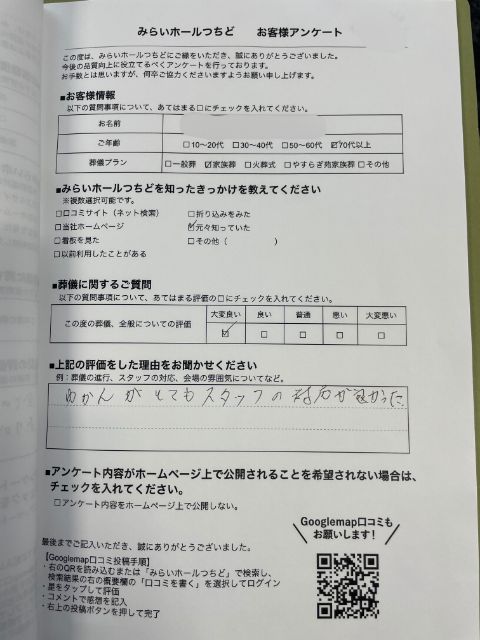 みらいホールつちど　お客様アンケート
この度は、みらいホールつちどにご縁をいただき、誠にありがとうございました。
今後の品質向上に役立てるべくアンケートを行っております。
お手数とは思いますが、何卒ご協力くださいますようお願い申し上げます。
■お客様情報
以下の質問事項について、あてはまる□にチェックを入れてください。
お名前
ご年齢 □10～20代 □30～40代 □50～60代 ☑70代以上
葬儀プラン □一般葬 ☑家族葬 □火葬式 □やすらぎ苑家族葬 □その他
■みらいホールつちどを知ったきっかけを教えてください
※複数選択可能です。
□口コミサイト（ネット検索） □折り込みをみた
□当社ホームページ ☑元々知っていた
□看板を見た □その他（　　　）
□以前利用したことがある
■葬儀に関するご質問
以下の質問事項について、あてはまる評価の□にチェックを入れてください。
大変良い 良い 普通 悪い 大変悪い
この度の葬儀、全般についての評価 ☑ □ □ □ □
■上記の評価をした理由をお聞かせください
例：葬儀の進行、スタッフの対応、会場の雰囲気についてなど。
がとてもスタッフの対応が良かった
■アンケート内容がホームページ上で公開されることを希望されない場合は、
チェックを入れてください。
□アンケート内容をホームページ上で公開しない。
Googlemap口コミも
お願いします！
最後までご記入いただき、誠にありがとうございました。
【Googlemap口コミ投稿手順】
・右のQRを読み込むまたは「みらいホールつちど」で検索し、
検索結果の右の概要欄の「口コミを書く」を選択してログイン
・星をタップして評価
・コメントで感想を記入
・右上の投稿ボタンを押して完了